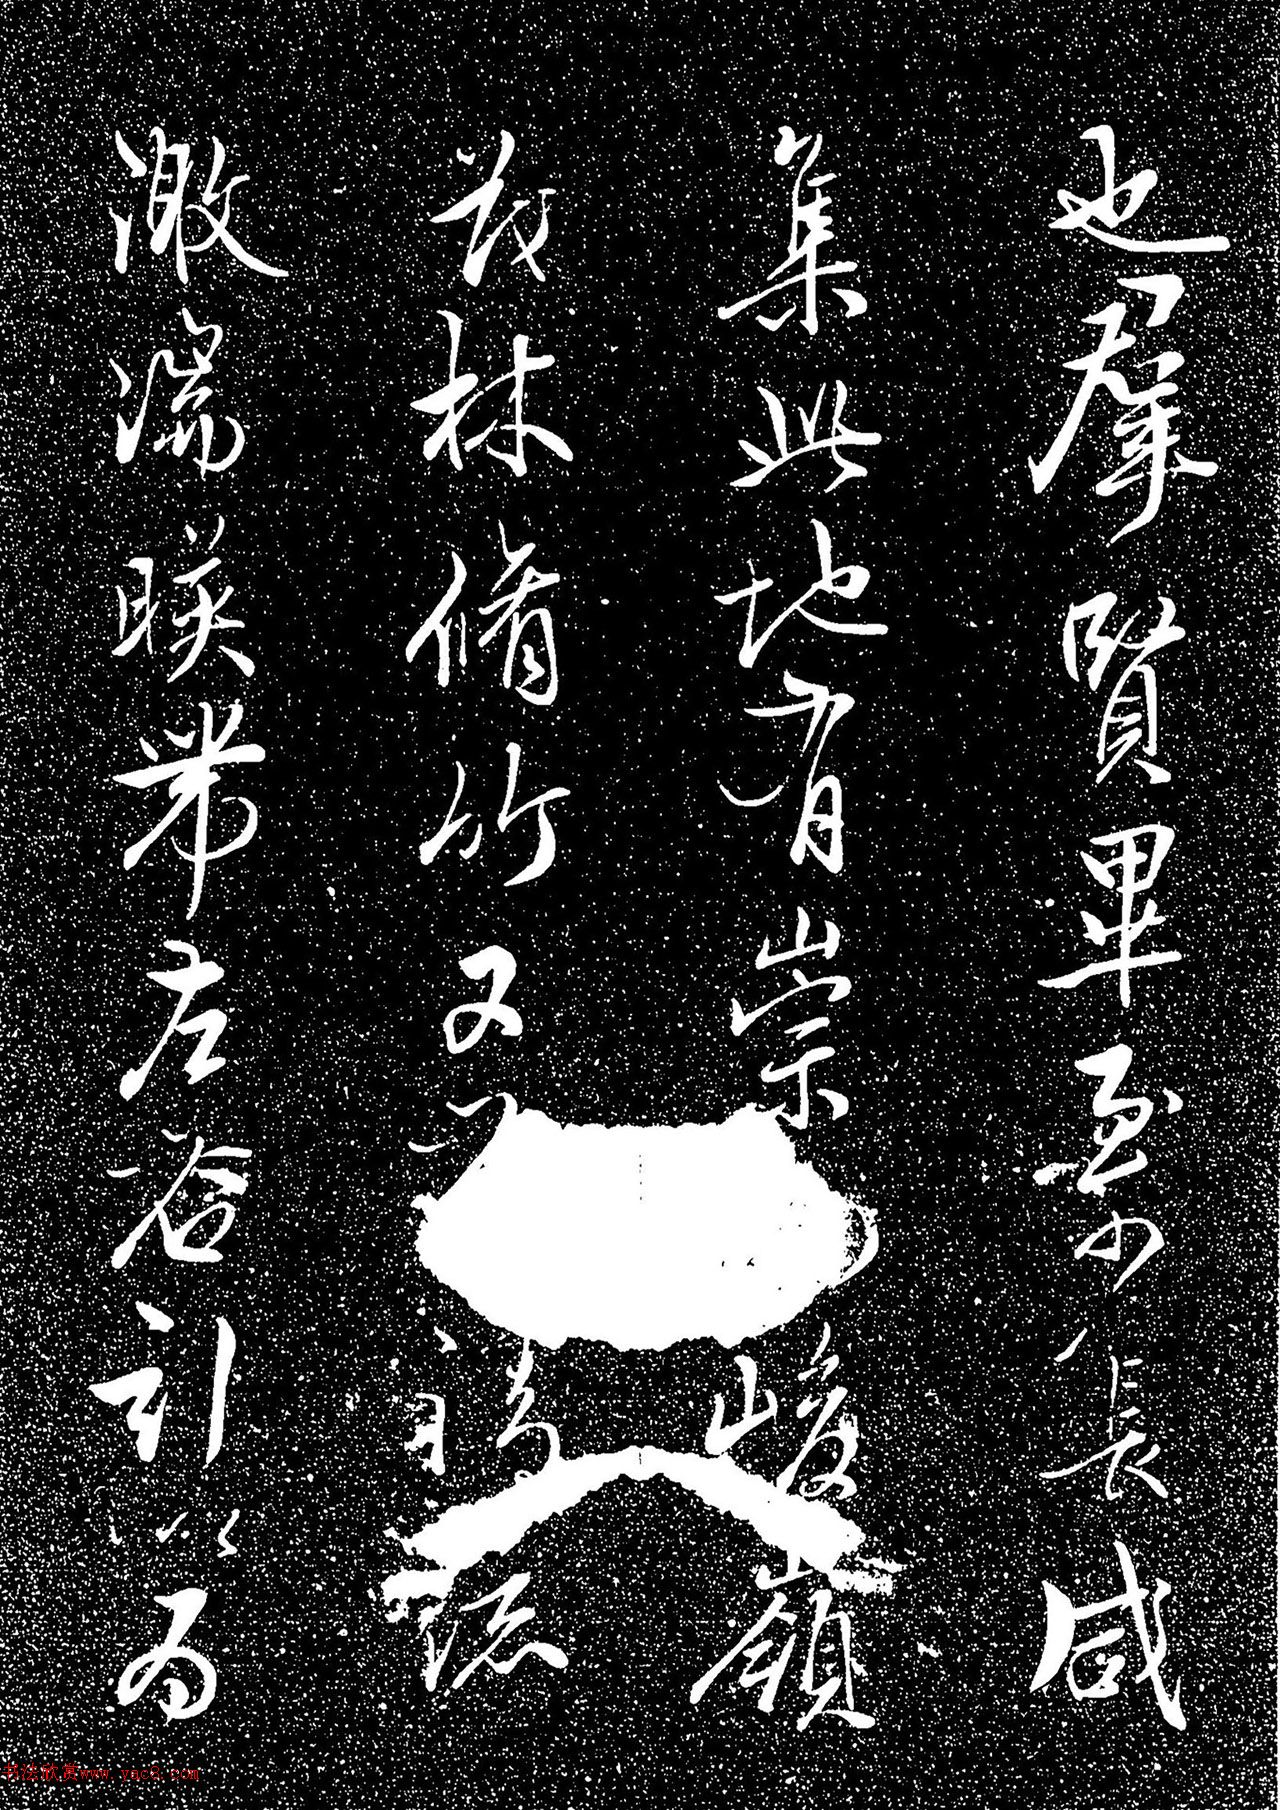 也羣賢畢至少長咸
集此地有崇峻嶺
茂林脩竹又清流
激湍暎帶左右引以為
书法欣赏www.yac8.com